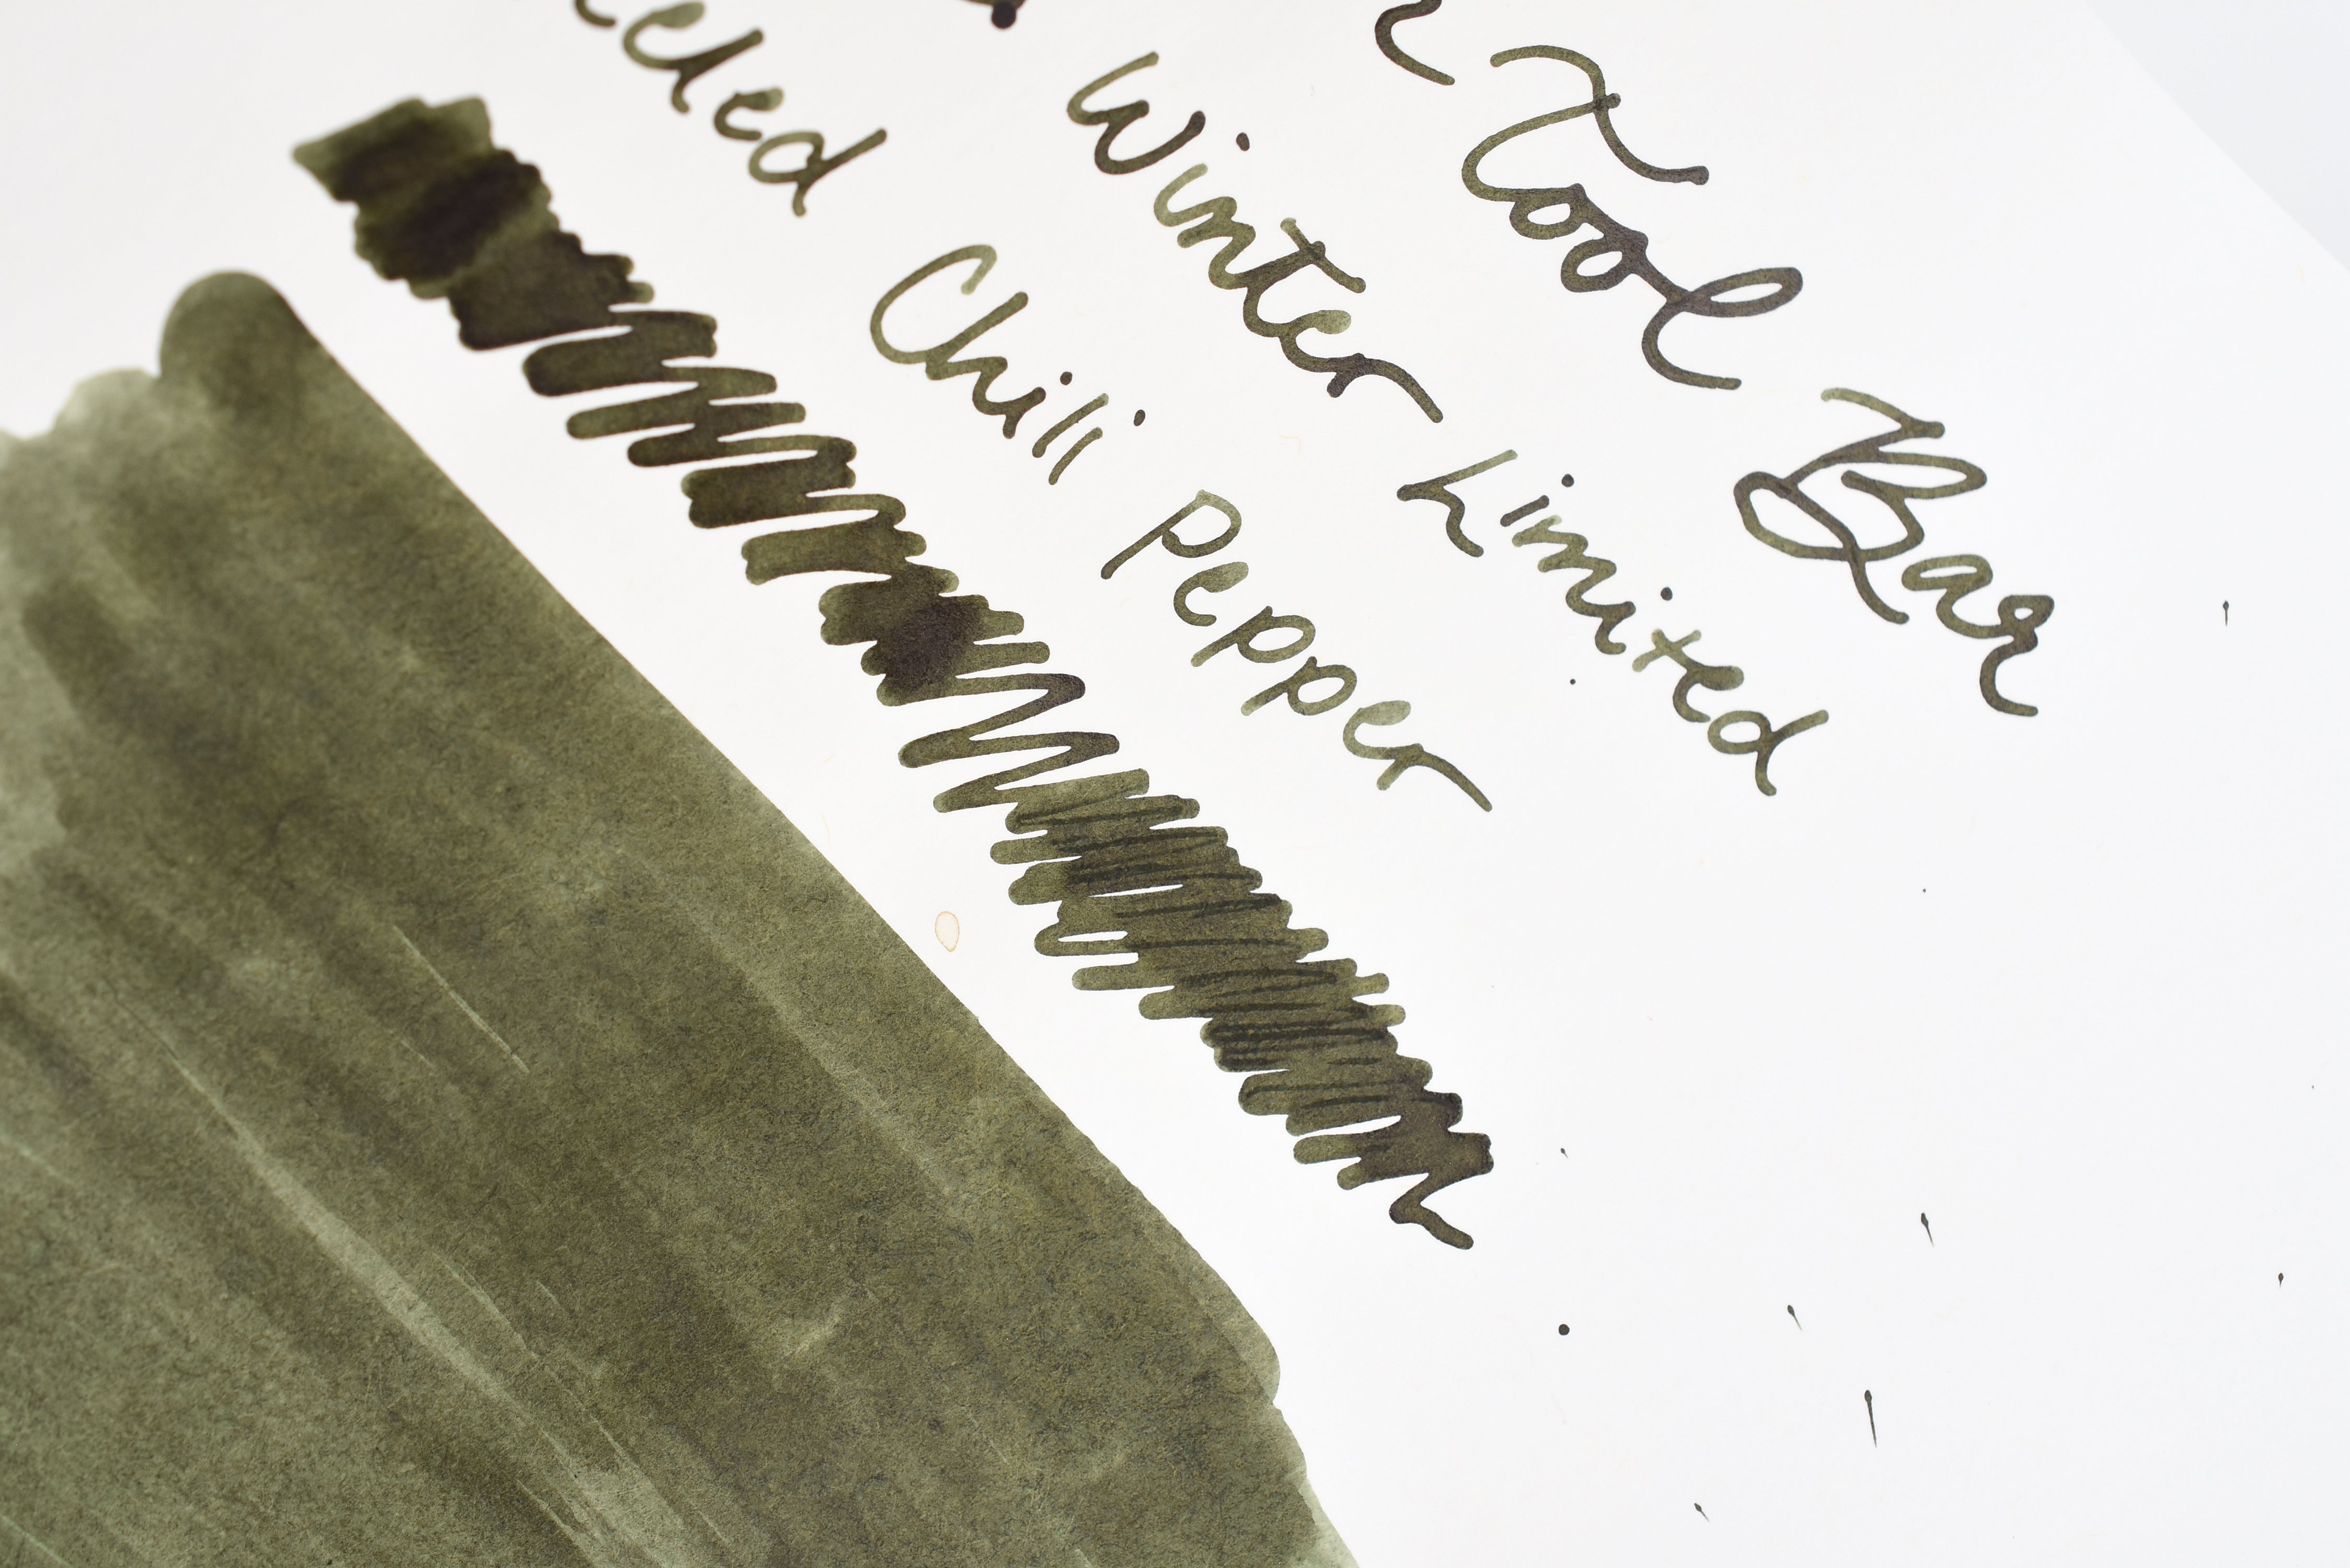 Tool Bar
Winter Limited
Chili Pepper